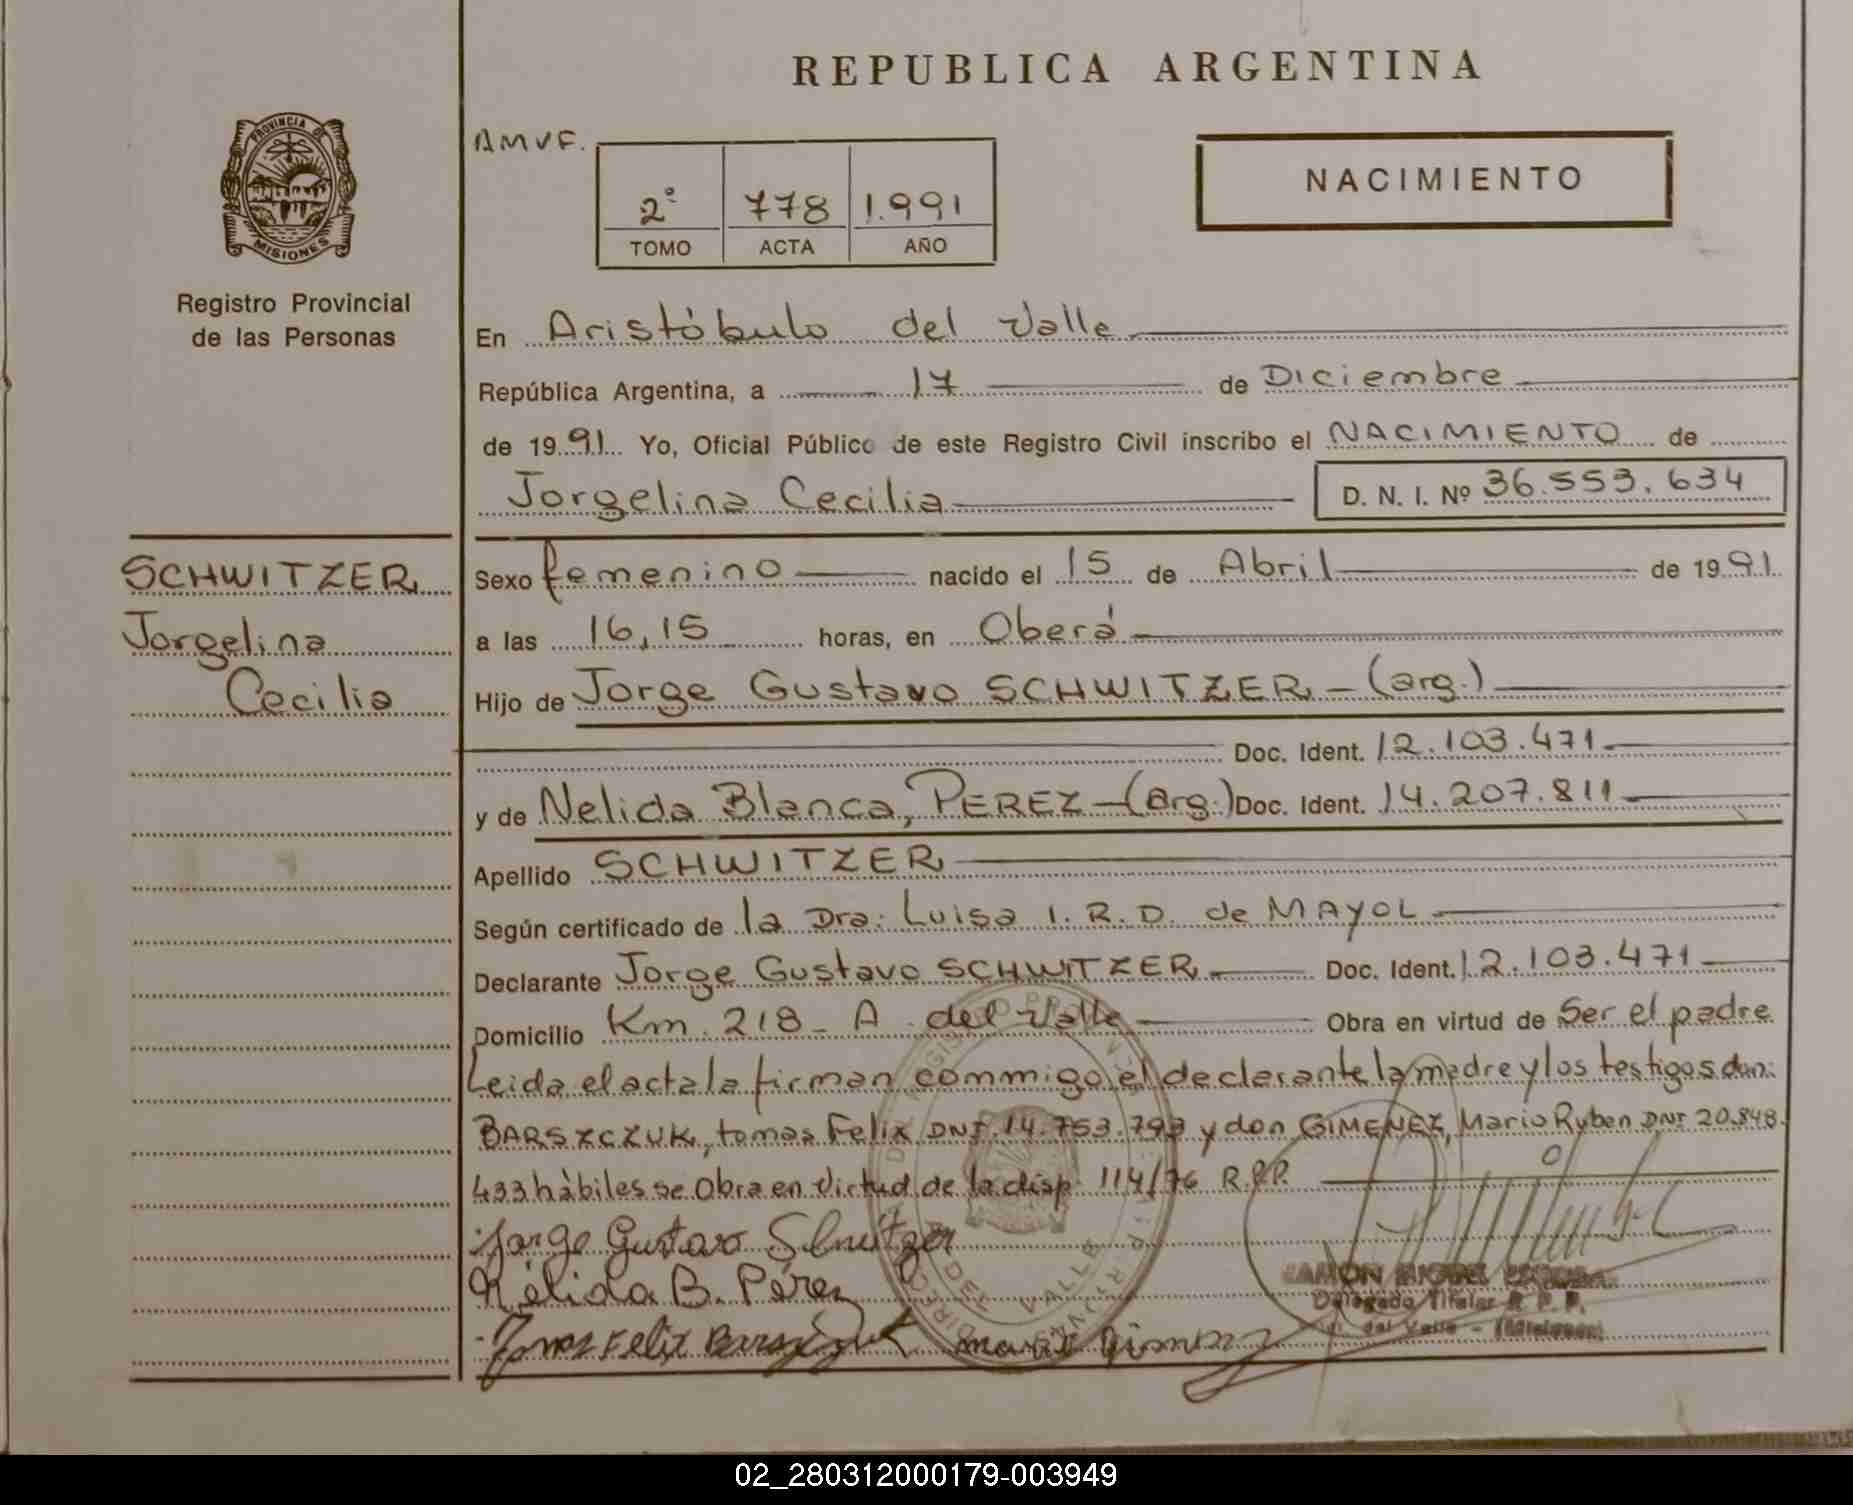 REPUBLICA ARGENTINA
PROVINCIA DE
MISIONES
Registro Provincial
de las Personas
AMVF.
2º 778 1.991
TOMO ACTA AÑO
NACIMIENTO
En Aristóbulo del Valle
República Argentina, a 17 de Diciembre
de 1991 Yo, Oficial Público de este Registro Civil inscribo el NACIMIENTO de
Jorgelina Cecilia D. N. I. Nº 36.553.634
SCHWITZER
Jorgelina
Cecilia
Sexo femenino nacido el 15 de Abril de 1991
a las 16,15 horas, en Oberá
Hijo de Jorge Gustavo SCHWITZER - (arg.)
Doc. Ident. 12.103.471
y de Nelida Blanca, PEREZ - (arg.) Doc. Ident. 14.207.811
Apellido SCHWITZER
Según certificado de la Dra: Luisa I. R. D. de MAYOL
Declarante Jorge Gustavo SCHWITZER Doc. Ident. 12.103.471
Domicilio Km. 218 - A. del Valle Obra en virtud de Ser el padre
Leida el acta la firman commigo el declarante la madre y los testigos don:
BARSZCZUK, tomas Felix DNI. 14.753.793 y don GIMENEZ, Mario Ruben DNI 20.848.
433 hàbiles se Obra en Virtud de la disp. 114/76 R.P.P.
Jorge Gustavo Schwitzer
Nélida B. Pérez
Tomas Felix Barszczuk Mario Gimenez
RAMON MIGUEL
Delegado Titular R. P. P.
del Valle - (Misiones)
02_280312000179-003949